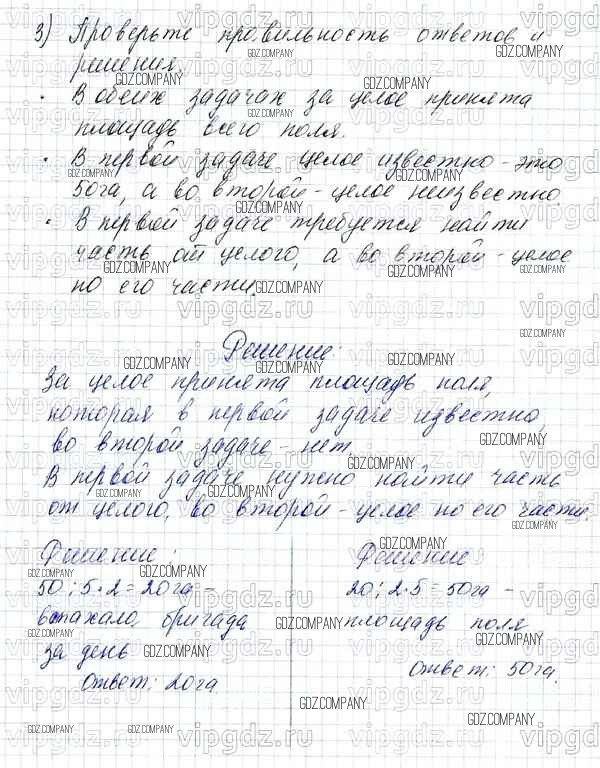 3) Проверьте правильность ответов и
решения.
• В обеих задачах за целое принята
площадь всего поля.
• В первой задаче целое известно - это
50га, а во второй - целое неизвестно.
• В первой задаче требуется найти
часть от целого, а во второй - целое
по его части.
Решение:
За целое принята площадь поля,
которая в первой задаче известно,
во второй задаче - нет.
В первой задаче нужно найти часть
от целого, во второй - целое по его части.
Решение:
50 : 5 • 2 = 20га -
вспахало бригада
за день
Ответ: 20га
Решение:
20 : 2 • 5 = 50га -
площадь поля
Ответ: 50га.